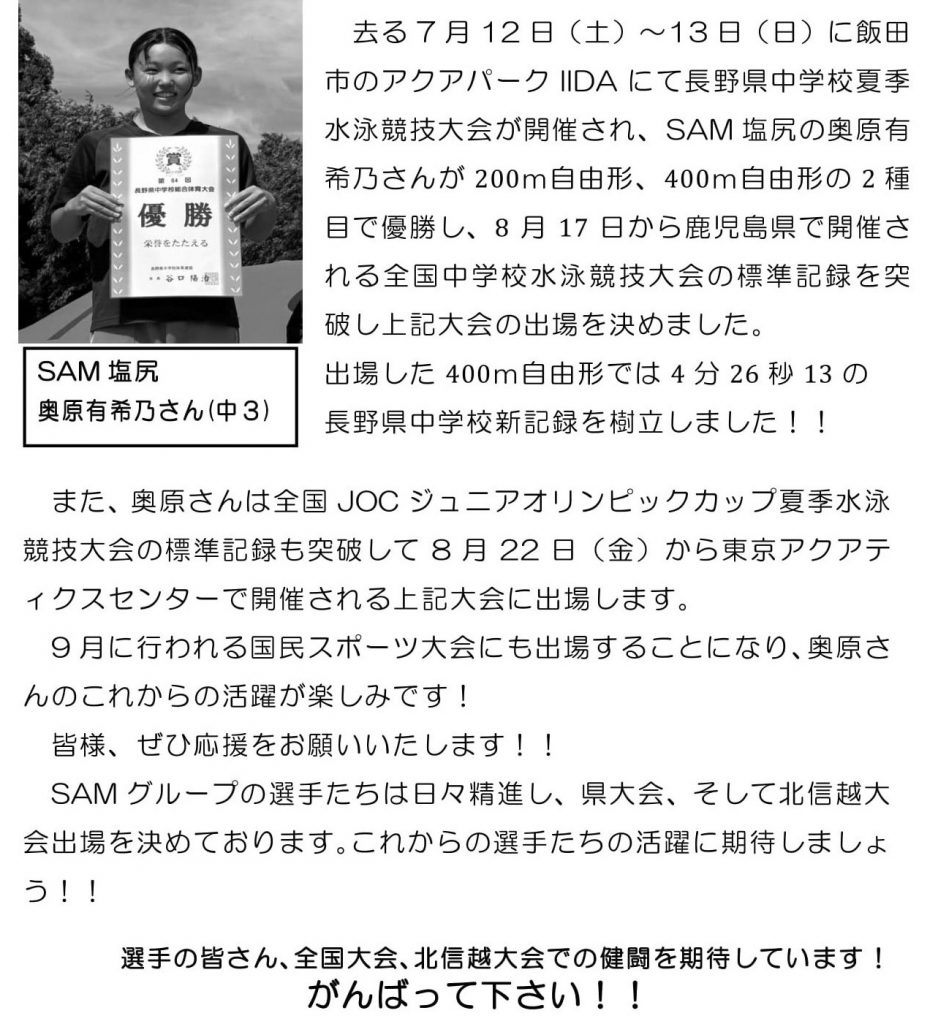 賞
第 64 回
長野県中学校総合体育大会
優 勝
栄誉をたたえる
長野県中学校体育連盟
SAM 塩尻
奥原有希乃さん(中３)
去る７月 12 日（土）～13 日（日）に飯田
市のアクアパーク IIDA にて長野県中学校夏季
水泳競技大会が開催され、SAM 塩尻の奥原有
希乃さんが 200ｍ自由形、400ｍ自由形の 2 種
目で優勝し、8 月 17 日から鹿児島県で開催さ
れる全国中学校水泳競技大会の標準記録を突
破し上記大会の出場を決めました。
出場した 400ｍ自由形では 4 分 26 秒 13 の
長野県中学校新記録を樹立しました！！
また、奥原さんは全国 JOC ジュニアオリンピックカップ夏季水泳
競技大会の標準記録も突破して 8 月 22 日（金）から東京アクアテ
ィクスセンターで開催される上記大会に出場します。
９月に行われる国民スポーツ大会にも出場することになり、奥原さ
んのこれからの活躍が楽しみです！
皆様、ぜひ応援をお願いいたします！！
SAM グループの選手たちは日々精進し、県大会、そして北信越大
会出場を決めております。これからの選手たちの活躍に期待しましょ
う！！
選手の皆さん、全国大会、北信越大会での健闘を期待しています！
がんばって下さい！！